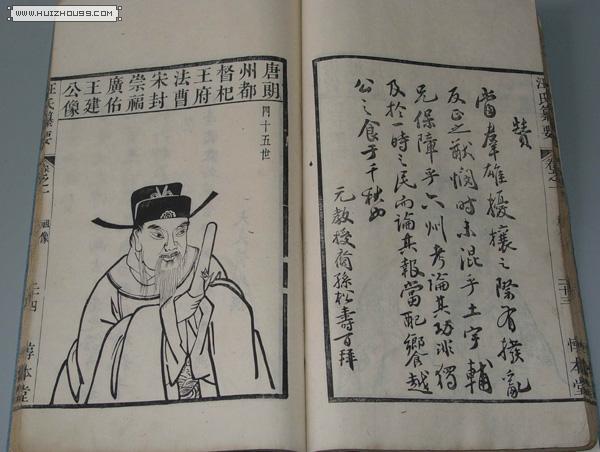 WWW.HUIZHOU99.COM
汪氏纂要
卷之一
二十三
惇本堂
贊
當羣雄擾攘之際有撥亂
反正之猷憫時未混乎土宇輔
兄保障乎六州考論其功非獨
及於一時之民而論其報當配饗越
公之食于千秋也
元教授裔孫松壽百拜
唐朗
州都
督杞
王府
法曹
宋封
崇福
廣佑
王建
公像
四十五世
汪氏纂要
卷之一
像
二十四
惇本堂